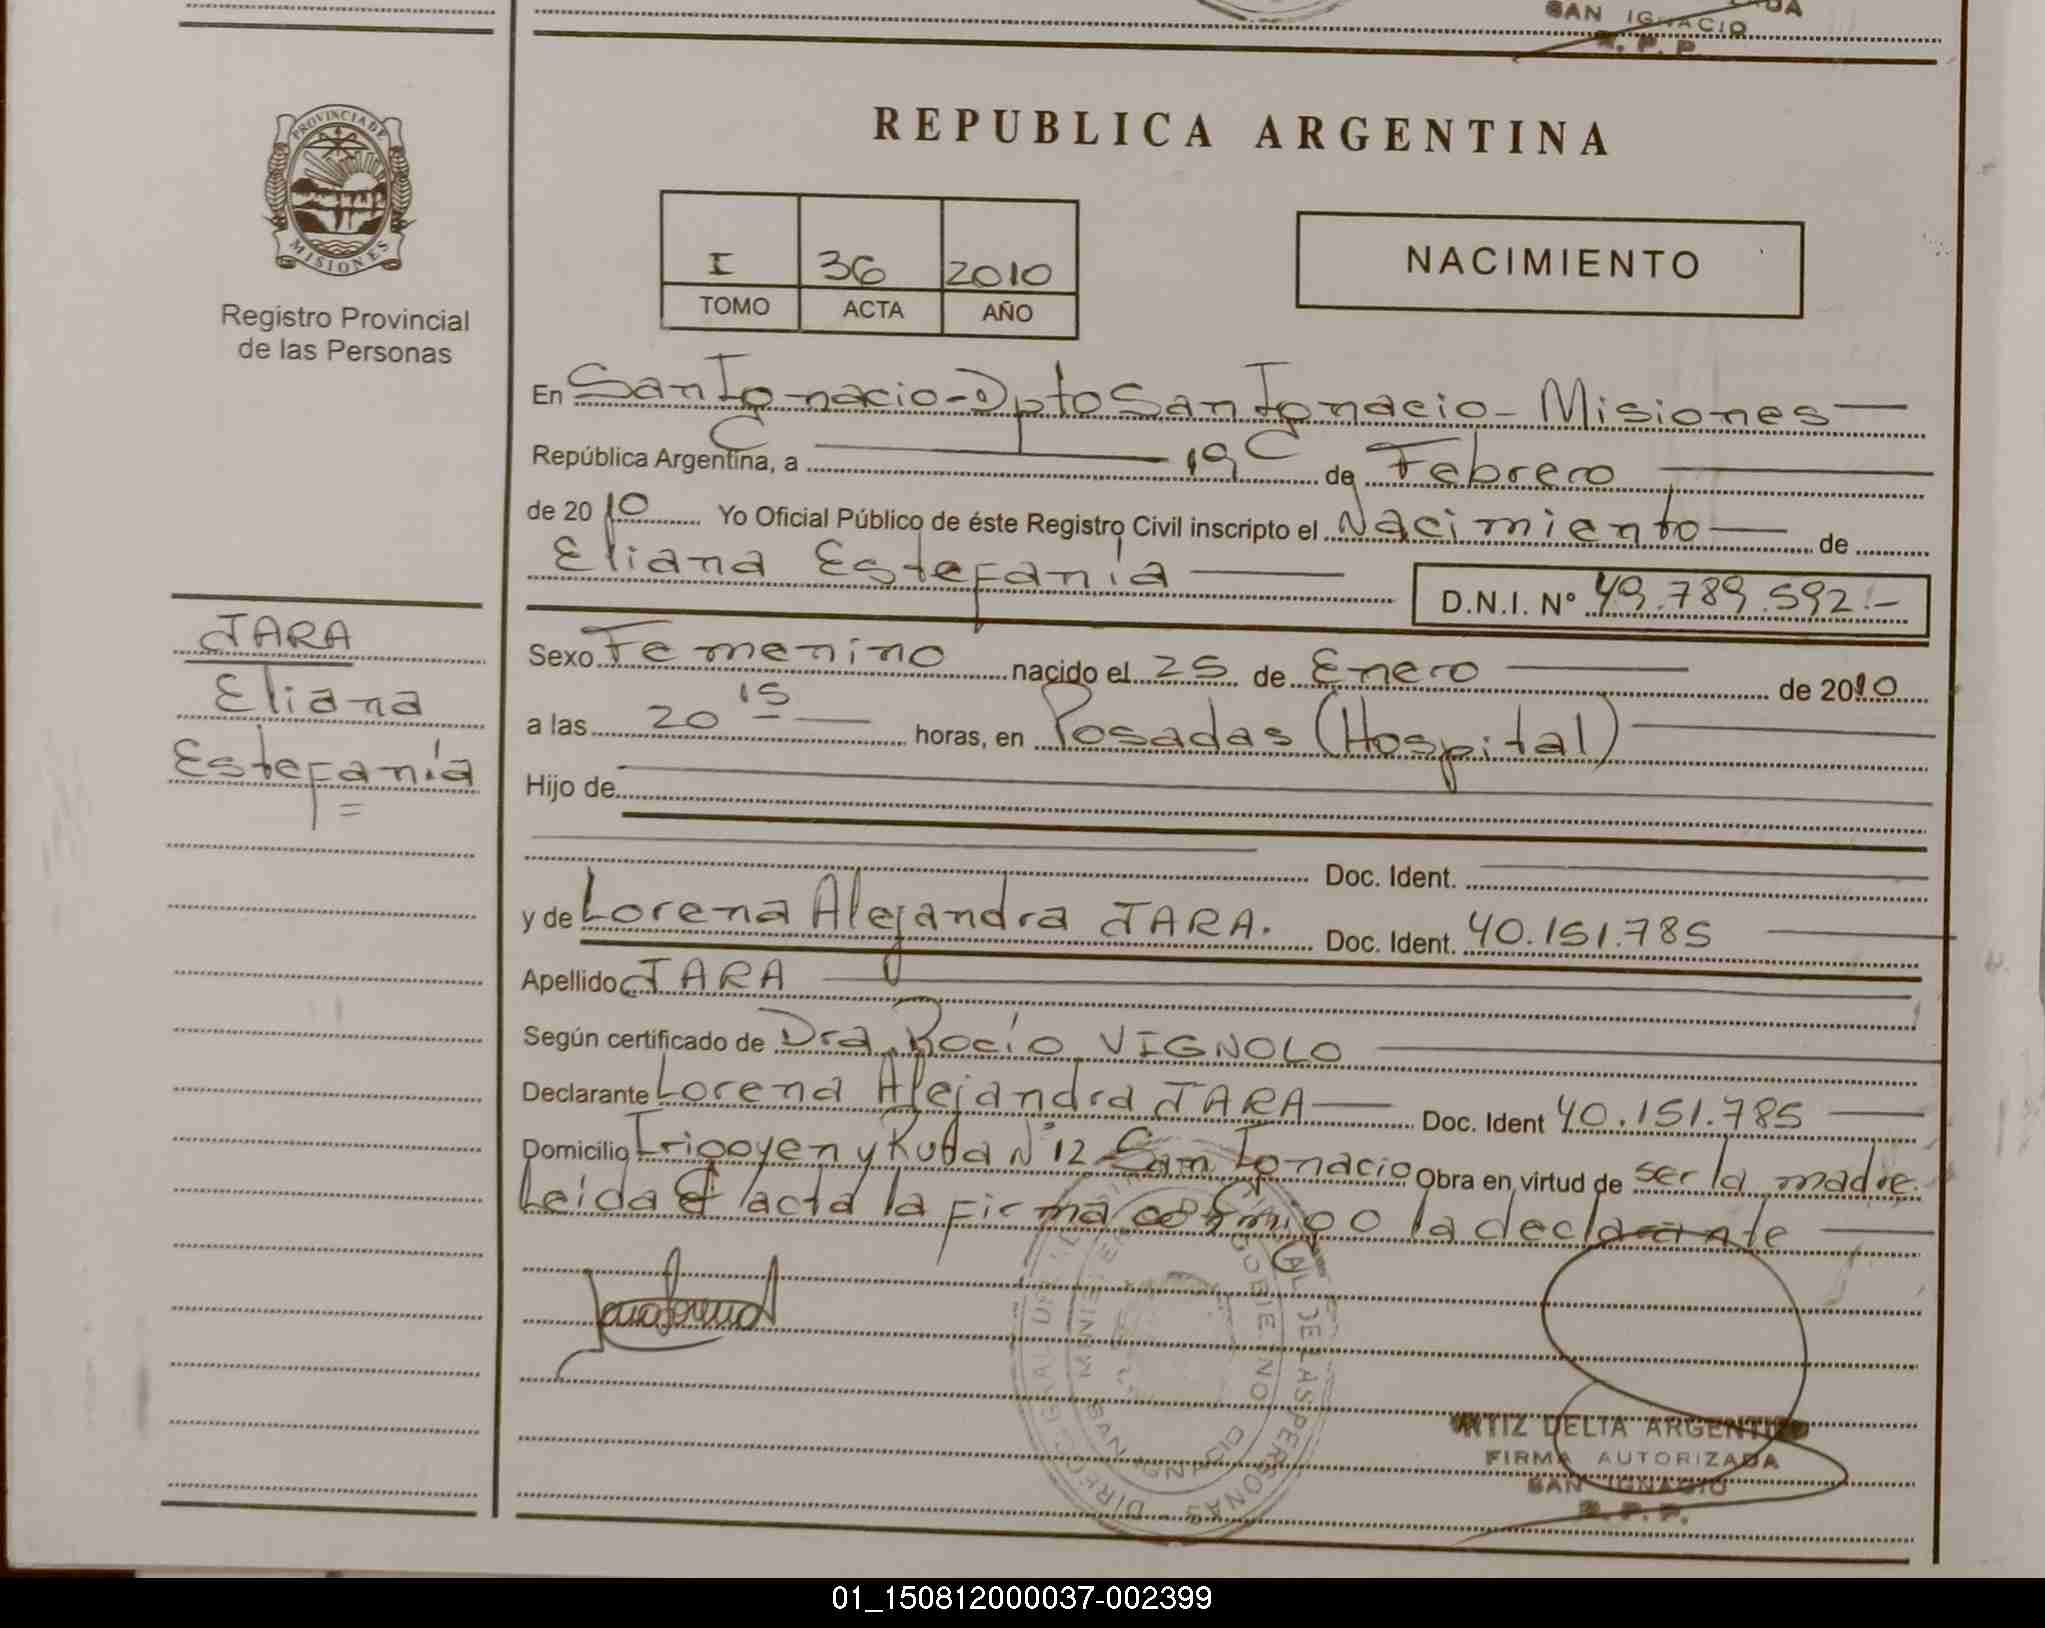 SAN IGNACIO
R. P. P.
PROVINCIA DE
MISIONES
Registro Provincial
de las Personas
REPUBLICA ARGENTINA
I 36 2010
TOMO ACTA AÑO
NACIMIENTO
En San Ignacio - Dpto San Ignacio - Misiones
República Argentina, a 19 de Febrero
de 2010 Yo Oficial Público de éste Registro Civil inscripto el Nacimiento de
Eliana Estefanía
D.N.I. N° 49.789.592.-
JARA
Eliana
Estefanía =
Sexo Femenino nacido el 25 de Enero de 2010
a las 20 15 horas, en Posadas (Hospital)
Hijo de
Doc. Ident.
y de Lorena Alejandra JARA. Doc. Ident. 40.151.785
Apellido JARA
Según certificado de Dra. Rocío VIGNOLO
Declarante Lorena Alejandra JARA Doc. Ident 40.151.785
Domicilio Irigoyen y N° 12 San Ignacio Obra en virtud de ser la madre.
Leida el acta la firma conmigo la declarante
DELIA ARGENTINA
FIRMA AUTORIZADA
SAN IGNACIO
R. P. P.
01_150812000037-002399